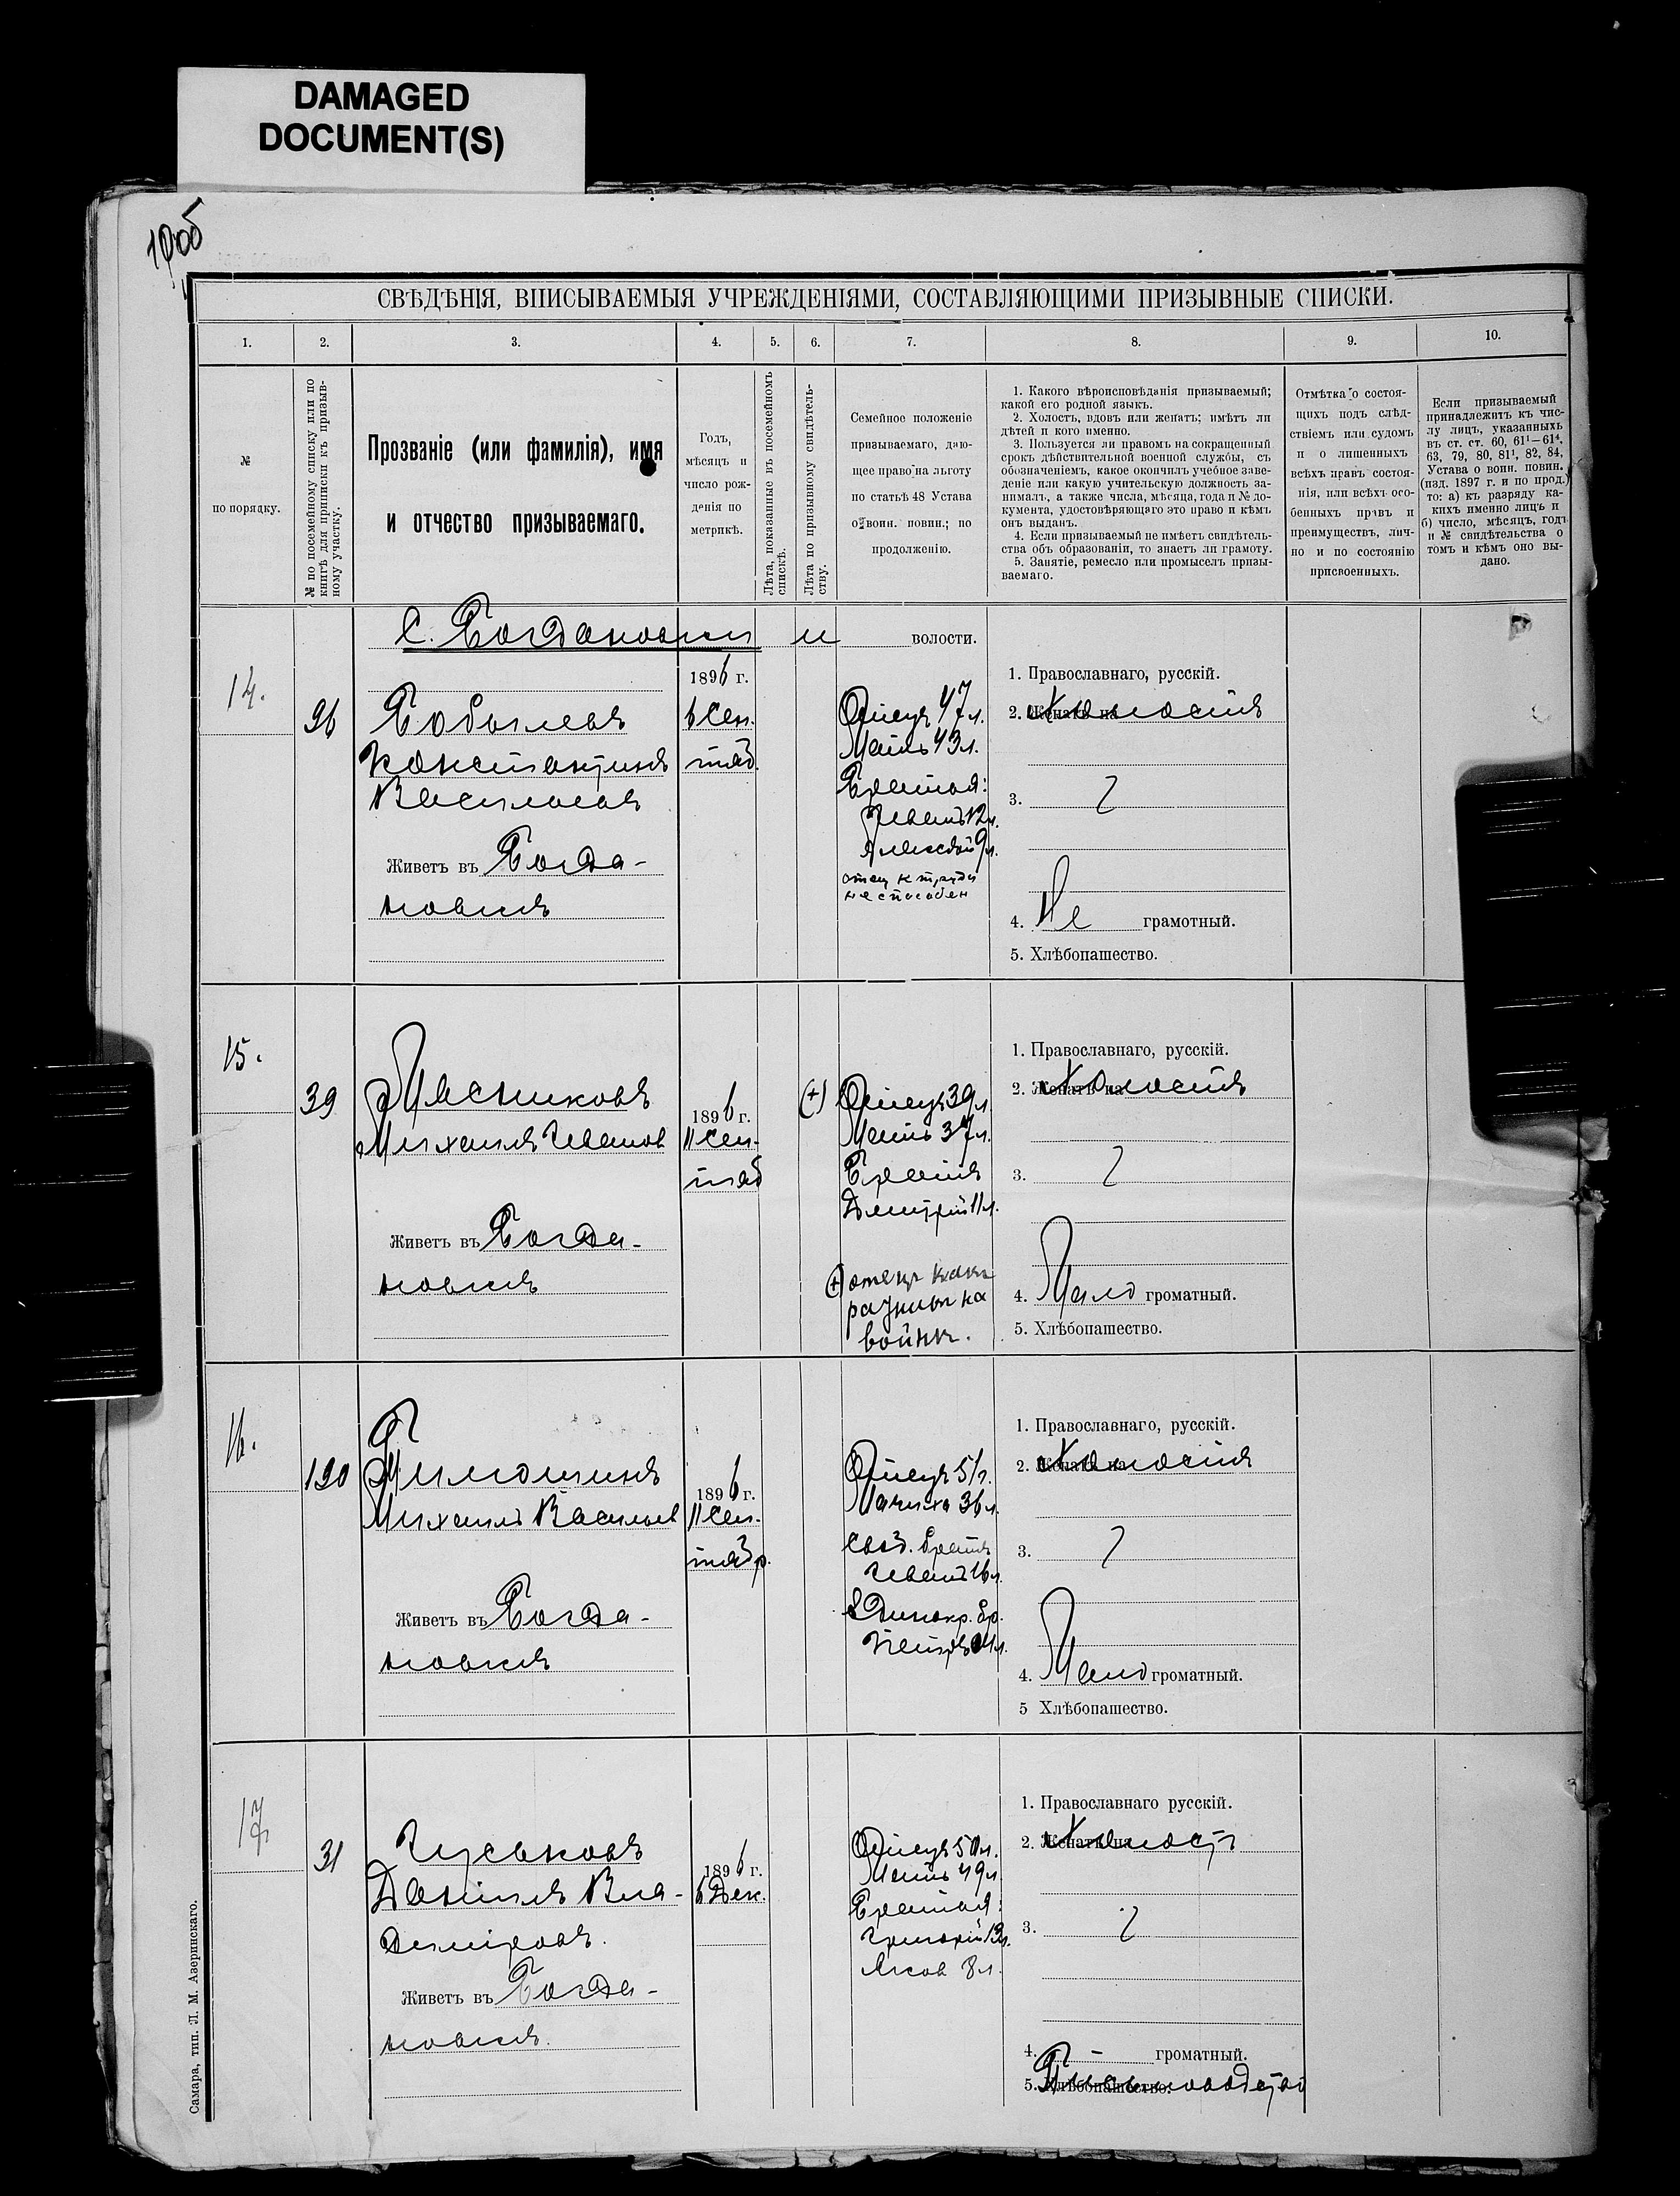 DAMAGED
DOCUMENT(S)
10об
СВѢДѢНІЯ, ВПИСЫВАЕМЫЯ УЧРЕЖДЕНІЯМИ, СОСТАВЛЯЮЩИМИ ПРИЗЫВНЫЕ СПИСКИ.
1. 2. 3. 4. 5. 6. 7. 8. 9. 10.
№
по порядку.
№ по посемейному списку или по
книгѣ для приписки къ призыв-
ному участку.
Прозваніе (или фамилія), имя
и отчество призываемаго.
Годъ,
мѣсяцъ и
число рож-
денія по
метрикѣ.
Лѣта, показанные въ посемейномъ
спискѣ.
Лѣта по призывному свидѣтель-
ству.
Семейное положеніе
призываемаго, даю-
щее право на льготу
по статьѣ 48 Устава
о воин. повин.; по
продолженію.
1. Какого вѣроисповѣданія призываемый;
какой его родной языкъ.
2. Холостъ, вдовъ или женатъ; имѣтъ ли
дѣтей и кого именно.
3. Пользуется ли правомъ на сокращенный
срокъ дѣйствительной военной службы, съ
обозначеніемъ, какое окончилъ учебное заве-
деніе или какую учительскую должность за-
нималъ, а также числа, мѣсяца, года и № до-
кумента, удостовѣряющаго это право и кѣмъ
онъ выданъ.
4. Если призываемый не имѣетъ свидѣтель-
ства объ образованіи, то знаетъ ли грамоту.
5. Занятіе, ремесло или промыселъ призы-
ваемаго.
Отмѣтка о состоя-
щихъ подъ слѣд-
ствіемъ или судомъ
и о лишенныхъ
всѣхъ правъ состоя-
нія, или всѣхъ осо-
бенныхъ правъ и
преимуществъ, лич-
но и по состоянію
присвоенныхъ.
Если призываемый
принадлежитъ къ чис-
лу лицъ, указанныхъ
въ ст. ст. 60, 61¹—61⁴,
63, 79, 80, 81¹, 82, 84,
Устава о воин. повин.
(изд. 1897 г. и по прод.)
то: а) къ разряду ка-
кихъ именно лицъ и
б) число, мѣсяцъ, годъ
и № свидѣтельства о
томъ и кѣмъ оно вы-
дано.
С. Богдановки волости.
14.
96
Бобылевъ
Константинъ
Васильевъ
Живетъ въ Богда-
новкѣ
1896 г.
6 Сен.
тяб.
Отецъ 47 л.
Мать 43 л.
Братья:
Иванъ 12 л.
Алексѣй 9 л.
отец к труду
не способен
1. Православнаго, русскій.
2. Женатъ на Холостъ
3.
4. Не грамотный.
5. Хлѣбопашество.
15.
39
Мясниковъ
Михаилъ Иванов
Живетъ въ Богда-
новкѣ
1896 г.
11 Сен-
тяб
(+)
Отецъ 39 л.
Мать 37 л.
Братъ
Дмитрій 11 л.
(+) отецъ
на
войнѣ.
1. Православнаго, русскій.
2. Женатъ на Холостъ
3.
4. Мало громатный.
5. Хлѣбопашество.
16.
120
Михаилъ Васильев
Живетъ въ Богда-
новкѣ
1896 г.
11 Сен-
тябр.
Отецъ 51 г.
Мачиха 36 л.
Свод. братъ
Иванъ 16 л.
Единокр. бр.
Петръ
1. Православнаго, русскій.
2. Женатъ на Холостъ
3.
4. Мало громатный.
5 Хлѣбопашество.
17
31
Гуськовъ
Даніилъ Вла-
диміровъ.
Живетъ въ Богда-
новкѣ.
1896 г.
6 Дек.
Отецъ 50 л.
Мать 49 л.
Братья:
Григорій 13 л.
Яков 8 л.
1. Православнаго русскій.
2. Женатъ на Холост
3.
4. — громатный.
5. Хлѣбопашество.
Самара, тип. Л. М. Азеринскаго.